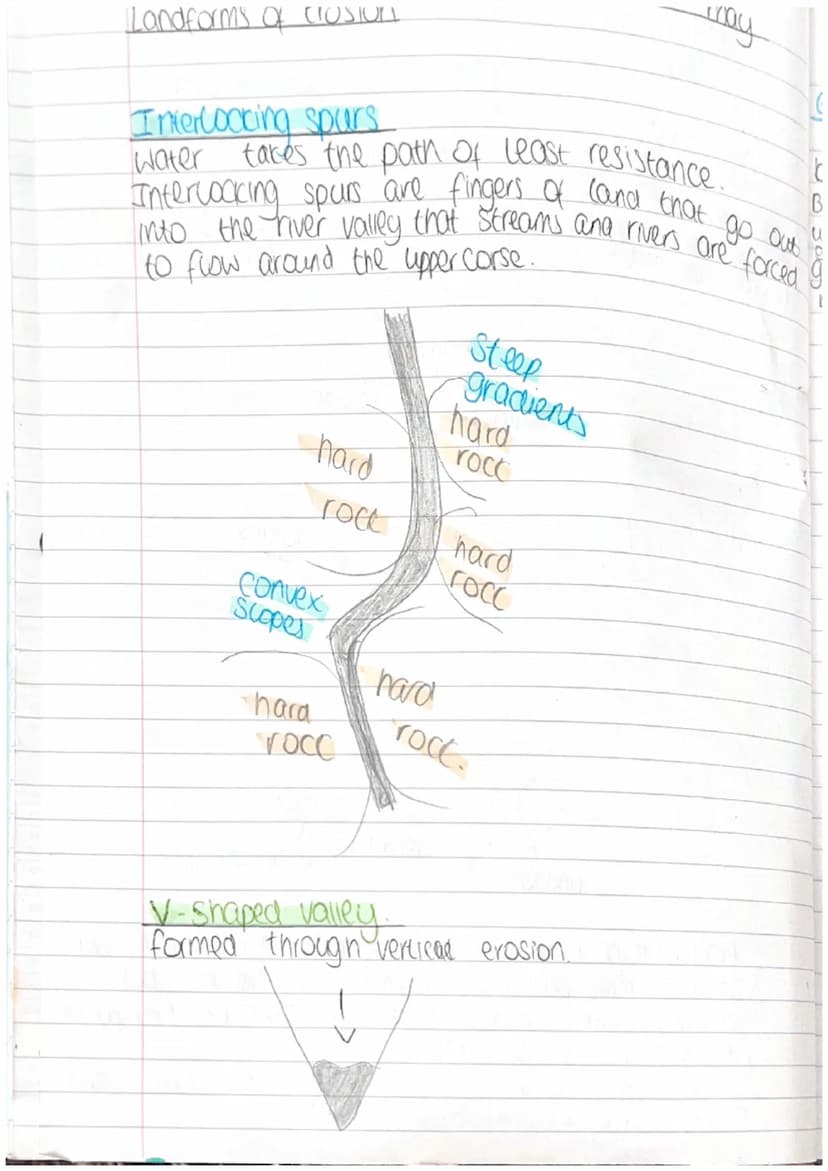 Landforms of erosion
may
Interlocking spurs
Water takes the path of least resistance.
Interlocking spurs are fingers of land that go out
into the river valley that streams and rivers are forced
to flow around the upper corse.
Steep
gradients
hard
rock
hard
rock
hard
rock
convex
scopes
hard
rock
hard
rock.
V-shaped valley.
formed through vertical erosion.